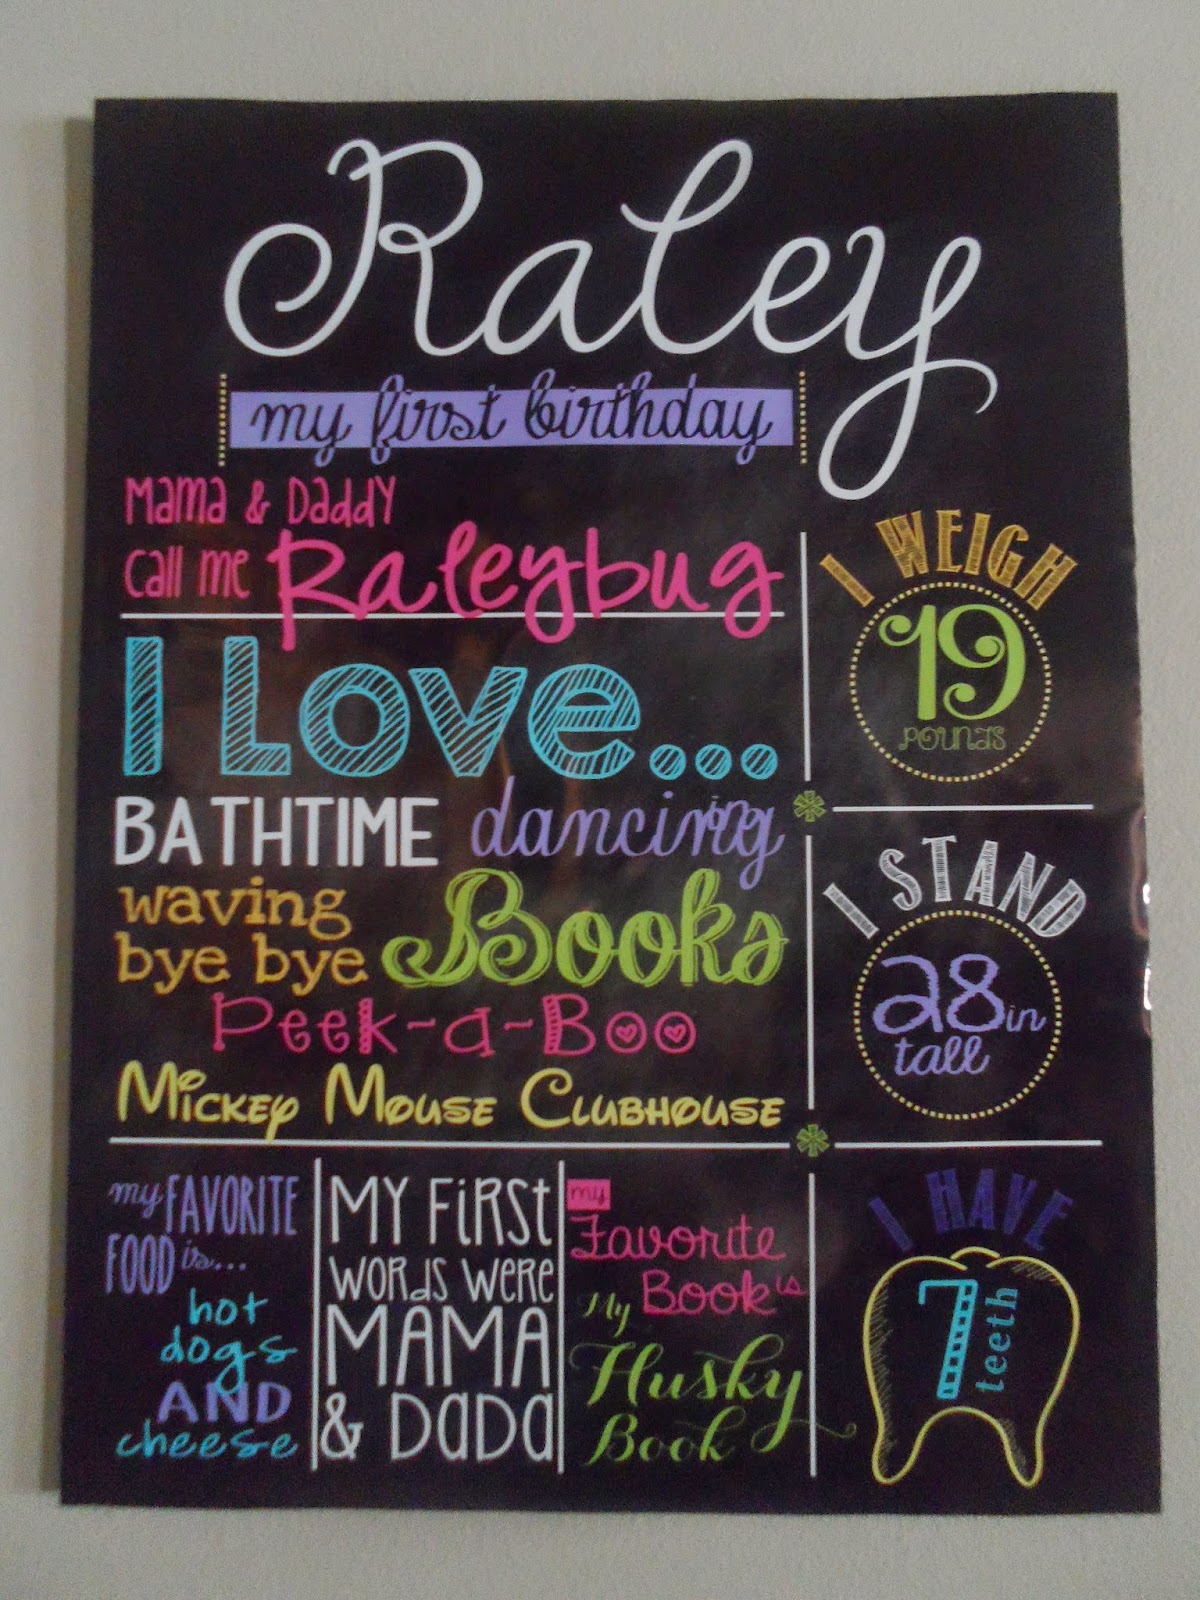 Raley
my first birthday
Mama & Daddy
call me Raleybug
I Love...
BATHTIME dancing
waving
bye bye Books
Peek-a-Boo
Mickey Mouse Clubhouse
I WEIGH
19
POUNDS
I STAND
28 in
tall
my FAVORITE
FOOD is...
hot
dogs
AND
cheese
MY FiRST
WORDS WERE
MAMA
& DaDa
my
Favorite
Book is
My
Husky
Book
I HAVE
7 teeth